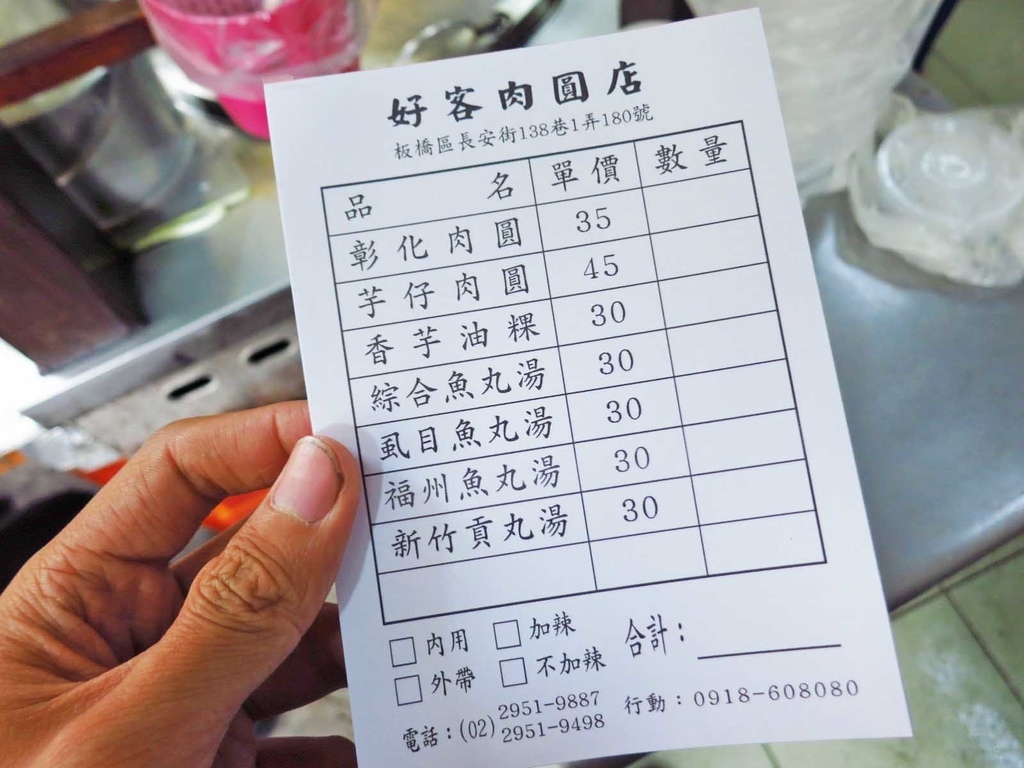 好客肉圓店
板橋區長安街138巷1弄180號
品名 單價 數量
彰化肉圓 35
芋仔肉圓 45
香芋油粿 30
綜合魚丸湯 30
虱目魚丸湯 30
福州魚丸湯 30
新竹貢丸湯 30
□內用 □加辣 合計：
□外帶 □不加辣
電話：(02) 2951-9887 行動：0918-608080
2951-9498